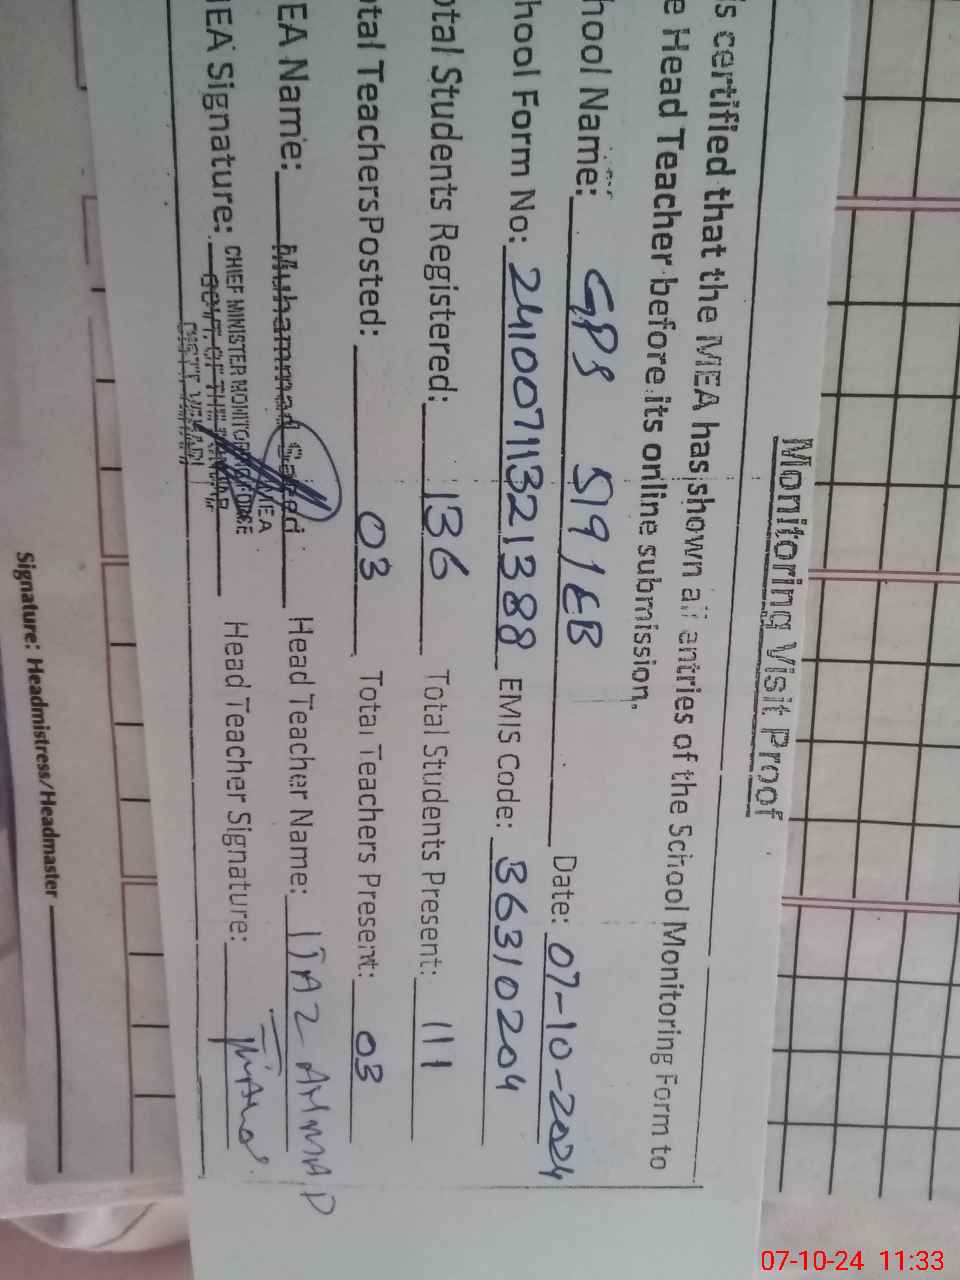 Monitoring Visit Proof
is certified that the MEA has shown all entries of the School Monitoring Form to
e Head Teacher before its online submission.
hool Name: GPS 519/EB Date: 07-10-2024
hool Form No: 24100711321388 EMIS Code: 36310204
otal Students Registered: 136 Total Students Present: 111
otal TeachersPosted: 03 Total Teachers Present: 03
EA Name: Muhammad Saeed Head Teacher Name: IJAZ AHMAD
MEA
EA Signature: Head Teacher Signature:
CHIEF MINISTER MONITORING FORCE
GOVT. OF THE PUNJAB
DISTT. VEHARI
Signature: Headmistress/Headmaster
07-10-24 11:33